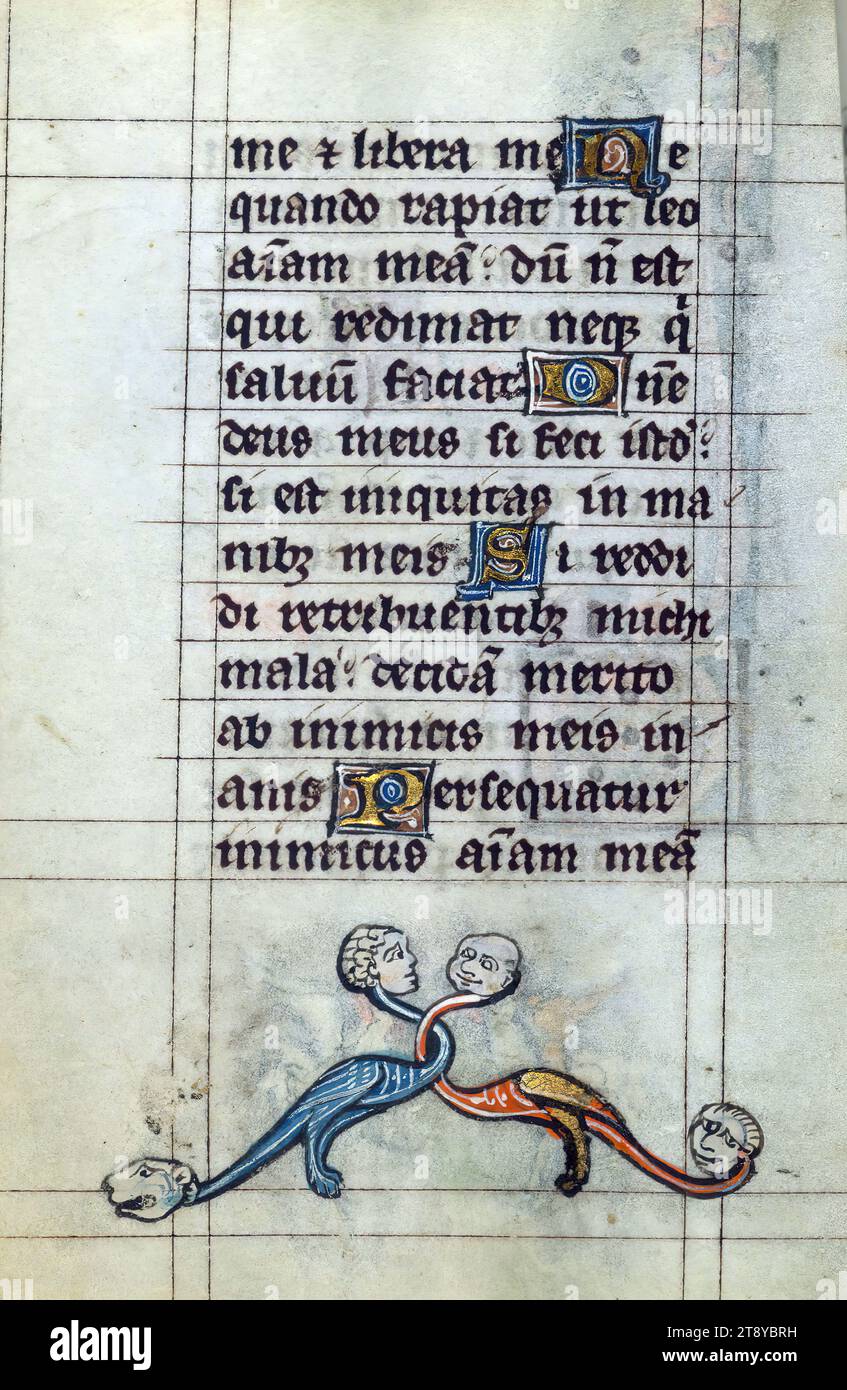 me ⁊ libera me Ne
quando rapiat ut leo
aīam meā: dū n̄ est
qui redimat neqꝫ q̇
saluū faciat Dn̄e
deus meus si feci istd̾:
si est iniquitas in ma
nibꝫ meis Si reddi
di retribuentibꝫ michi
mala: decidā merito
ab inimicis meis in
anis Persequatur
inimicus aīam meā
alamy
Image ID: 2T8YBRH
www.alamy.com